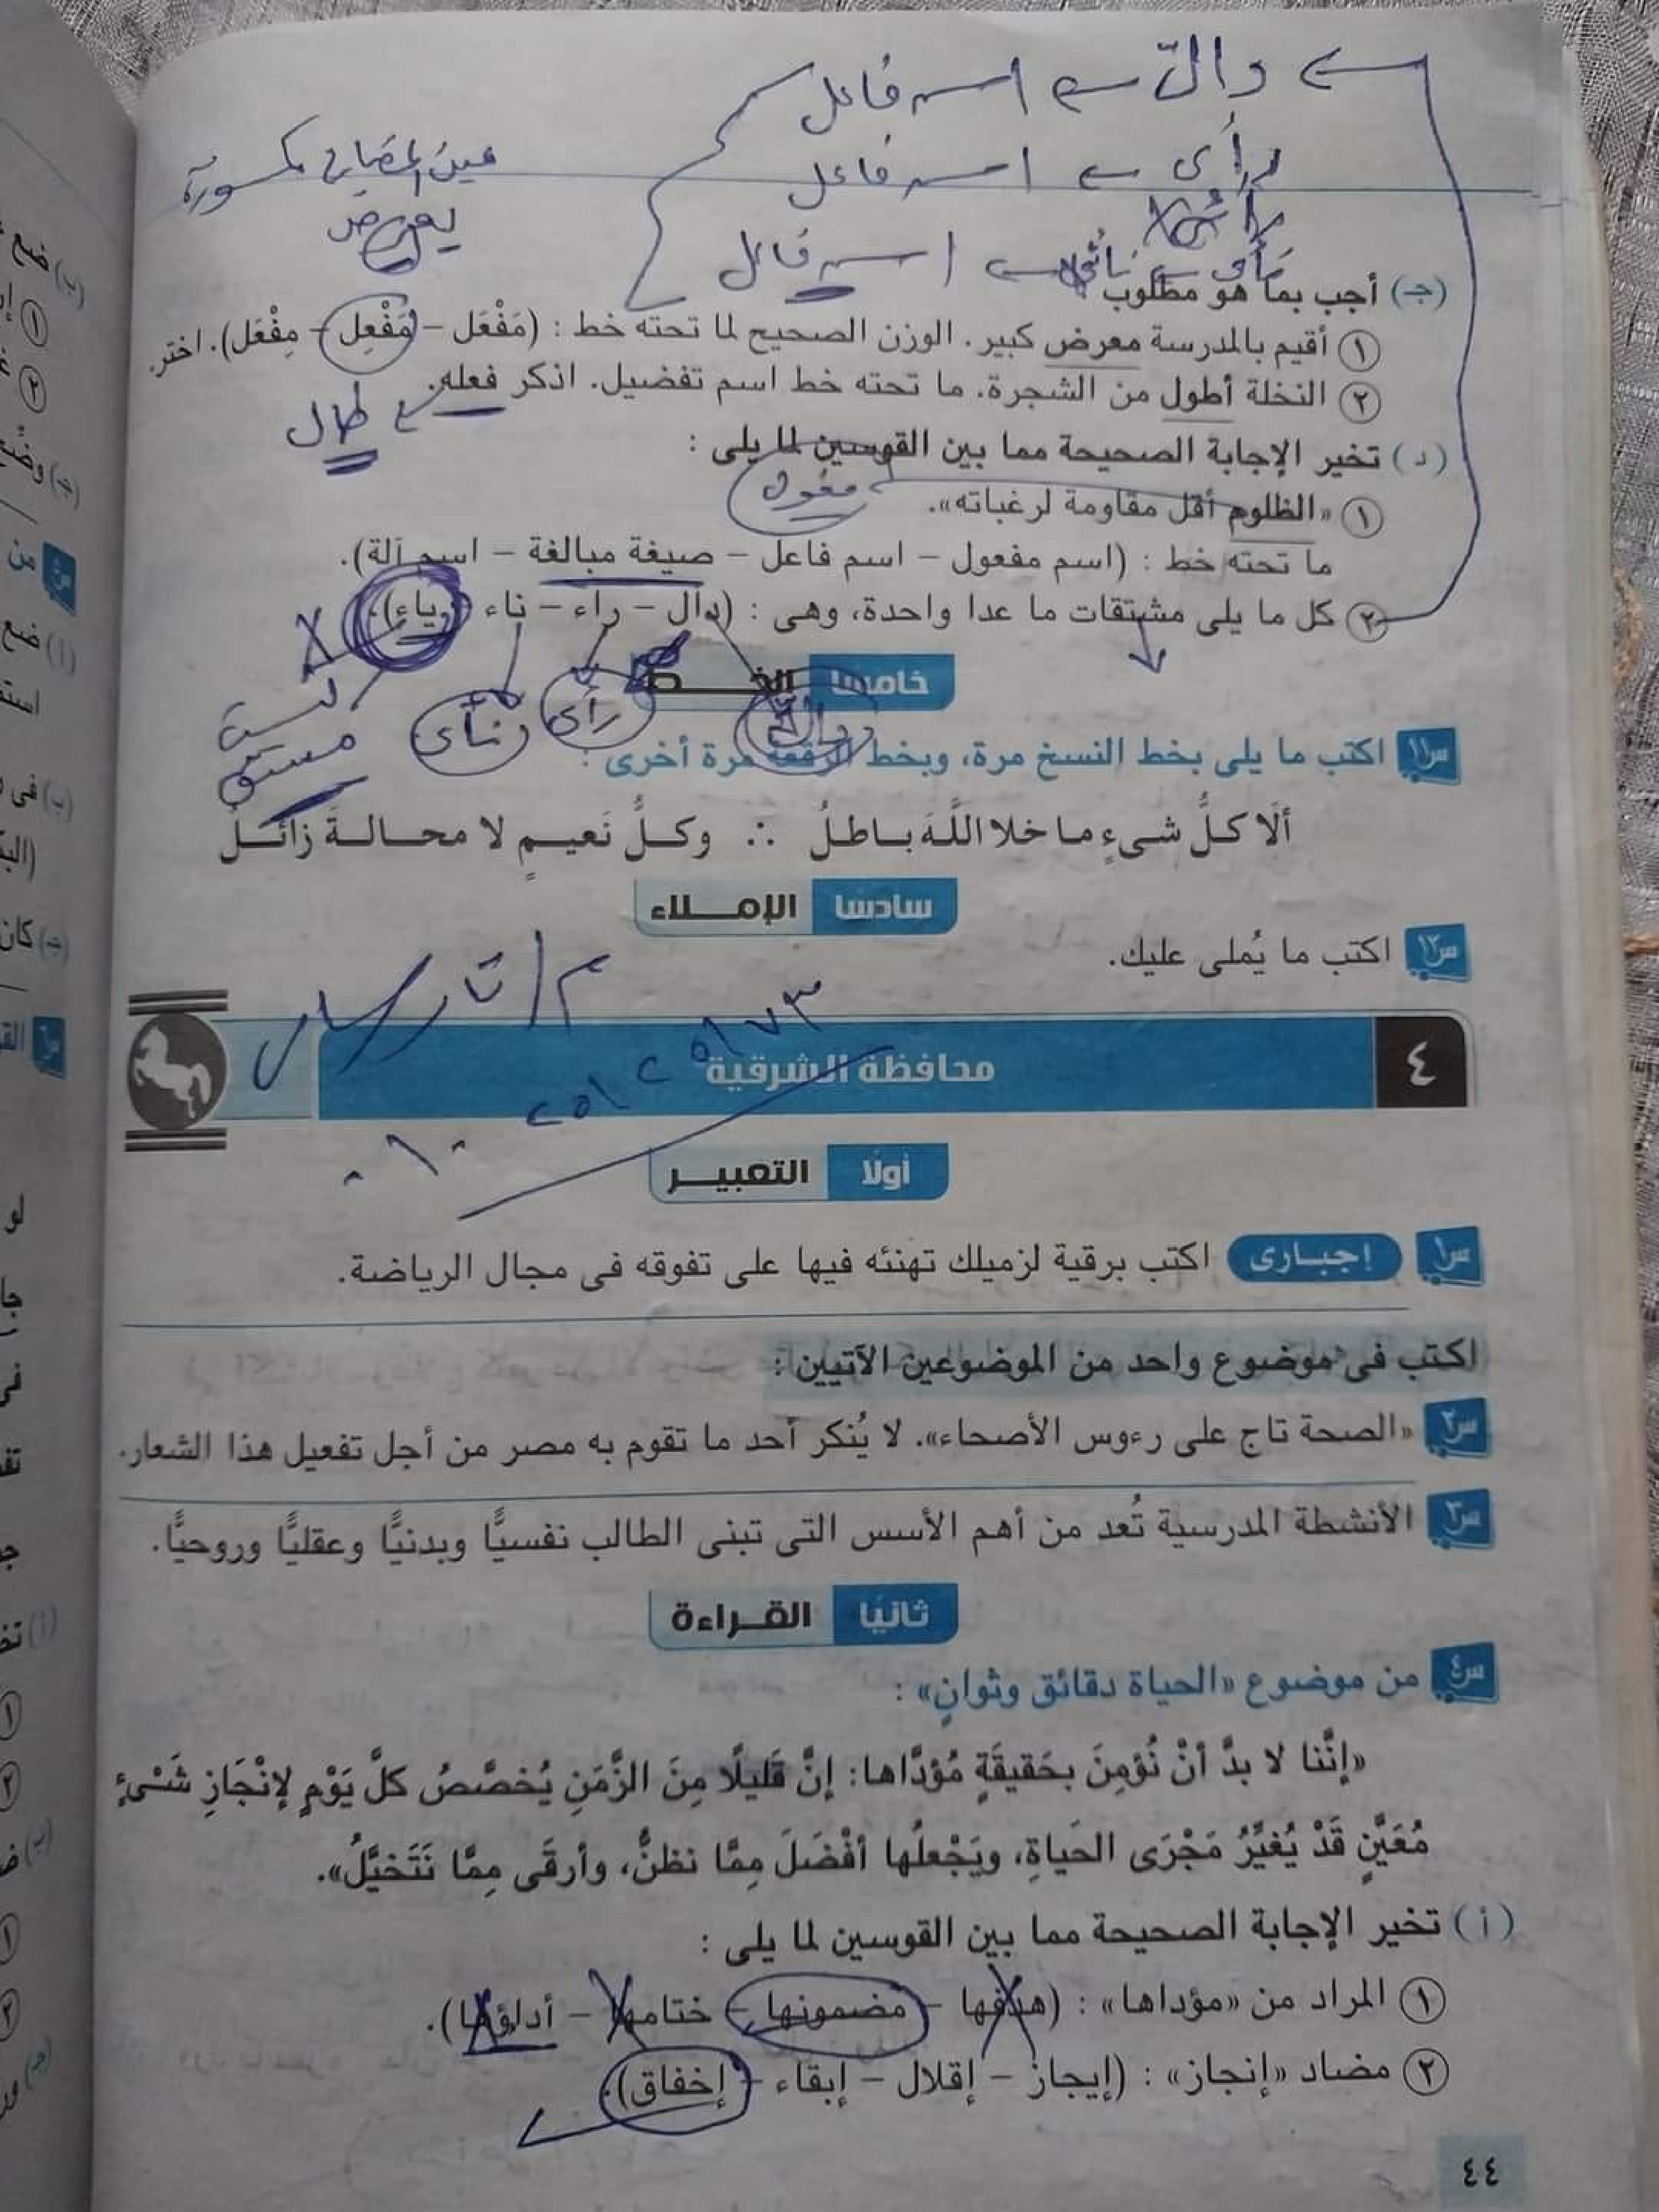 دالّ ← اسم فاعل
رأى ← اسم فاعل
عين المضارع مكسورة
يعرض
اسم فاعل
(جـ) أجب بما هو مطلوب
١ أقيم بالمدرسة معرض كبير. الوزن الصحيح لما تحته خط : (مَفْعَل – مَفْعِل – مِفْعَل). اختر.
٢ النخلة أطول من الشجرة. ما تحته خط اسم تفضيل. اذكر فعله.
طال
(د) تخير الإجابة الصحيحة مما بين القوسين لما يلى :
١ «الظلوم أقل مقاومة لرغباته».
فعول
ما تحته خط : (اسم مفعول – اسم فاعل – صيغة مبالغة – اسم آلة).
٢ كل ما يلى مشتقات ما عدا واحدة، وهى : (دال – راء – ناء – ياء).
خامسًا الخـــط
رأى نأى
ليست
مشتق
س١١ اكتب ما يلى بخط النسخ مرة، وبخط الرقعة مرة أخرى :
ألَا كلُّ شىءٍ ما خلا اللَّهَ باطلُ ∴ وكلُّ نَعيمٍ لا محالةَ زائلُ
سادسًا الإملاء
س١٢ اكتب ما يُملى عليك.
٤ محافظة الشرقية
أولًا التعبير
س١ إجبارى اكتب برقية لزميلك تهنئه فيها على تفوقه فى مجال الرياضة.
اكتب فى موضوع واحد من الموضوعين الآتيين :
س٢ «الصحة تاج على رءوس الأصحاء». لا يُنكر أحد ما تقوم به مصر من أجل تفعيل هذا الشعار.
س٣ الأنشطة المدرسية تُعد من أهم الأسس التى تبنى الطالب نفسيًّا وبدنيًّا وعقليًّا وروحيًّا.
ثانيًا القراءة
س٤ من موضوع «الحياة دقائق وثوانٍ» :
«إنَّنا لا بدَّ أنْ نُؤمِنَ بحَقيقَةٍ مُؤدَّاها: إنَّ قَليلًا مِنَ الزَّمَنِ يُخصَّصُ كلَّ يَوْمٍ لإنْجَازِ شَىْءٍ
مُعَيَّنٍ قَدْ يُغيِّرُ مَجْرَى الحَياةِ، ويَجْعلُها أفْضَلَ مِمَّا نظنُّ، وأرقَى مِمَّا نَتَخيَّلُ».
(أ) تخير الإجابة الصحيحة مما بين القوسين لما يلى :
١ المراد من «مؤداها» : (هدفها – مضمونها – ختامها – أداؤها).
٢ مضاد «إنجاز» : (إيجاز – إقلال – إبقاء – إخفاق).
٤٤